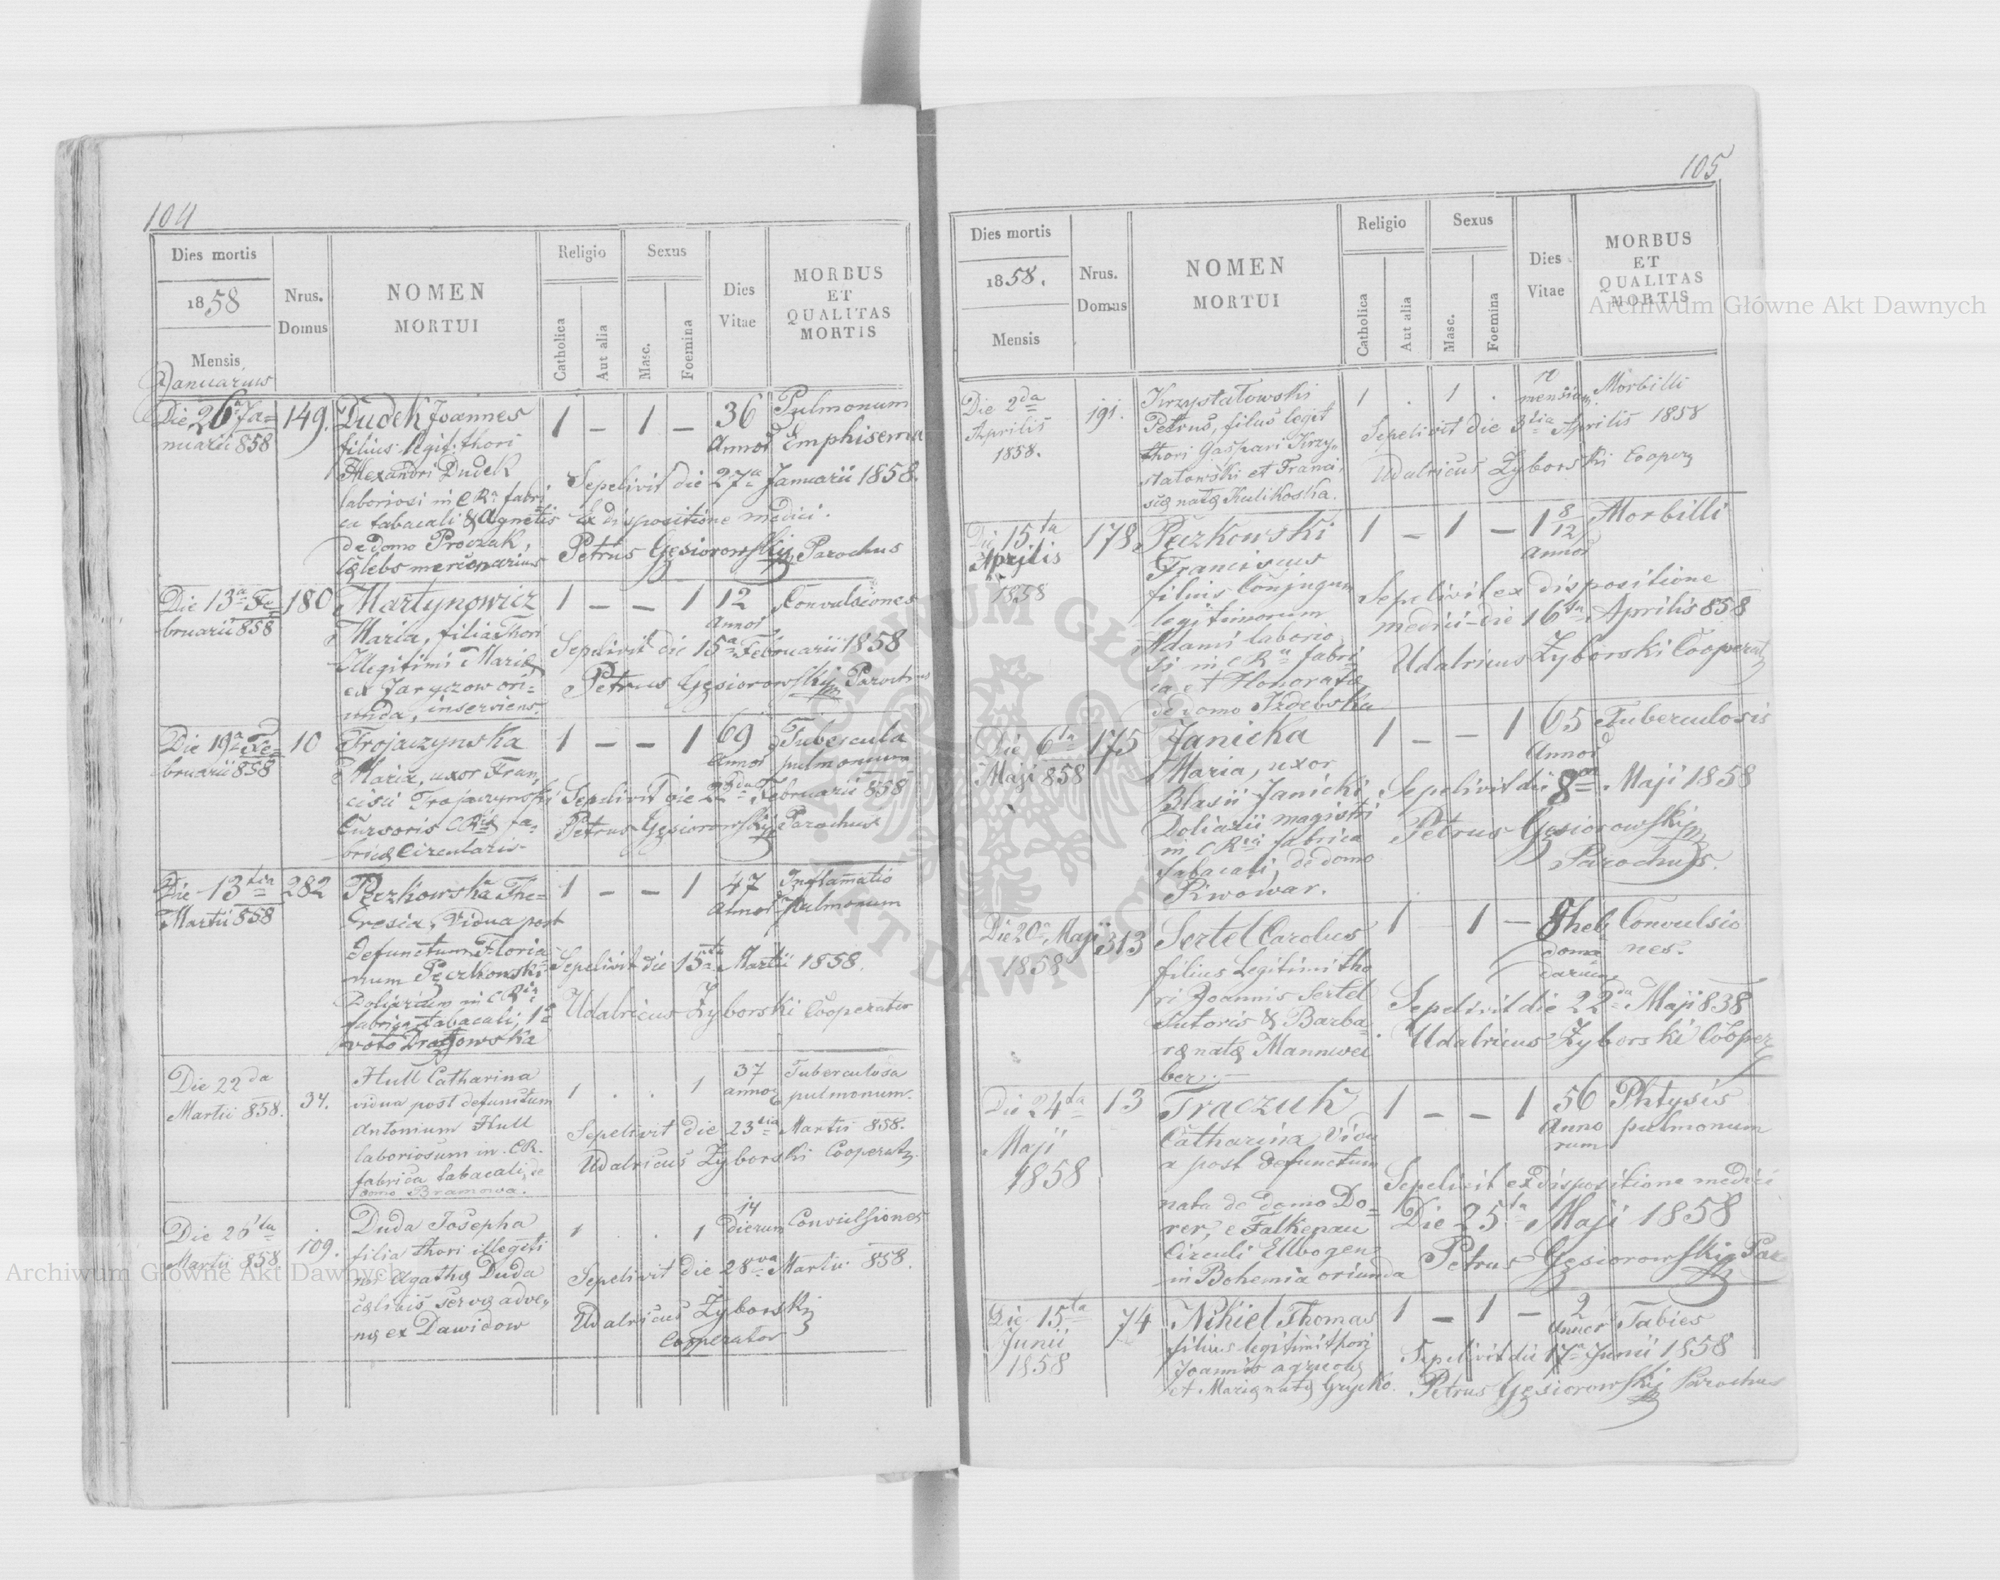 104
Dies mortis
1858
Mensis
Januarius
Nrus.
Domus
NOMEN
MORTUI
Religio
Catholica
Aut alia
Sexus
Masc.
Foemina
Dies
Vitae
MORBUS
ET
QUALITAS
MORTIS
Die 26a Ja=
nuarii 858
149.
Dudek Joannes
filius legit: thori
Alexandri Dudek
laboriosi in CRa fabri
ca tabacali & Agnetis
de domo Proczak,
cælebs mercenarius
1 – 1 –
36
Annor
Pulmonum
Emphisema
Sepelivit die 27a Januarii 1858.
Ex dispositione medici.
Petrus Gęsiorowski Parochus
Die 13a Fe=
bruarii 858
180
Martynowicz
Maria, filia thori
illegitimi Mariæ
ex Jaryczow ori=
unda, inserviens.
1 – – 1
12
Annor
Convulsiones
Sepelivit die 15a Februarii 1858
Petrus Gęsiorowski Parochus
Die 19a Fe=
bruarii 858
10
Trojaczynska
Maria, uxor Fran
cisci Trojaczynski
Cursoris CRæ fa=
bricæ Circularis.
1 – – 1
69
Annor
Tubercula
pulmonum
Sepelivit die 22da Februarii 858
Petrus Gęsiorowski Parochus
Die 13tia
Martii 858
282
Pęczkowska The=
resia, Vidua post
defunctum Floria=
num Pęczkowski
Doliarium in CRia
fabrica tabacali, 1o
voto
1 – – 1
47
Annor
Inflamatio
pulmonum
Sepelivit die 15ta Martii 1858.
Udalricus Zyborski Cooperator
Die 22da
Martii 858.
34.
Hull Catharina
vidua post defunctum
Antonium Hull
laboriosum in CR.
fabrica tabacali, de
domo Bramowa.
1 . . 1
37
annor
Tuberculosa
pulmonum.
Sepelivit die 23tia Martii 858.
Udalricus Zyborski Cooperat
Die 26ta
Martii 858
109.
Duda Josepha
filia thori illegiti
mi Agathæ Duda
cælibis servæ adve
næ ex Dawidow
1 . . 1
14
dierum
Convulsiones
Sepelivit die 28va Martii 858.
Udalricus Zyborski
Cooperator
105
Dies mortis
1858.
Mensis
Nrus.
Domus
NOMEN
MORTUI
Religio
Catholica
Aut alia
Sexus
Masc.
Foemina
Dies
Vitae
MORBUS
ET
QUALITAS
MORTIS
Die 2da
Aprilis
1858.
191.
Krzystalowski
Petrus, filius legit
thori Gaspari Krzy
stalowski et Franci
scæ natæ Kulikoska.
1 . 1 .
mensium
Morbilli
Sepelivit die 3tia Aprilis 1858
Udalricus Zyborski Cooper
Die 15ta
Aprilis
1858
178
Pęczkowski
Franciscus
filius Conjugum
legitimorum
Adami laborio
si in CRa fabri=
ca et Honoratæ
de domo Izdebska
1 – 1 –
1 8/12
Annor
Morbilli
Sepelivit ex dispositione
medici die 16ta Aprilis 858
Udalricus Zyborski Cooperat
Die 6ta
Maji 858
175
Janicka
Maria, uxor
Blasii Janicki
Doliarii magistri
in CRia fabrica
tabacali, de domo
Piwowar.
1 – – 1
65
Annor
Tuberculosis
Sepelivit die 8va Maji 1858
Petrus Gęsiorowski
Parochus.
Die 20a Maji
1858
313
Sertel Carolus
filius Legitimi tho
ri Joannis Sertel
Sutoris & Barba=
ræ natæ Mannwei
ber.
1 – 1 –
8 heb
doma
darum
Convulsio
nes.
Sepelivit die 22da Maji 838
Udalricus Zyborski Cooper
Die 24ta
Maji
1858
13
Traczuk
Catharina, Vidu
a post defunctum
nata de domo Do=
rer, e Falkenau
Circuli Ellbogen
in Bohemia oriunda
1 – – 1
56
Anno
rum
Phtysis
pulmonum
Sepelivit ex dispositione medici
Die 25ta Maji 1858
Petrus Gęsiorowski Par
Die 15ta
Junii
1858
74
Nikiel Thomas
filius legitimi thori
Joannis agricolæ
et Mariæ natæ Grycko.
1 – 1 –
2
Annor
Tabies
Sepelivit die 17a Junii 1858
Petrus Gęsiorowski Parochus
Archiwum Główne Akt Dawnych
Archiwum Główne Akt Dawnych
ARCHIWUM GŁÓWNE AKT DAWNYCH